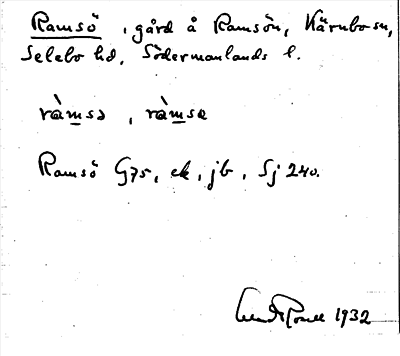 Ramsö, gård å Ramsön, Kärnbo sn,
Selebo hd, Södermanlands l.
ràmsə, ràmsa
Ramsö G75, ek, jb, Sj 240.
1932